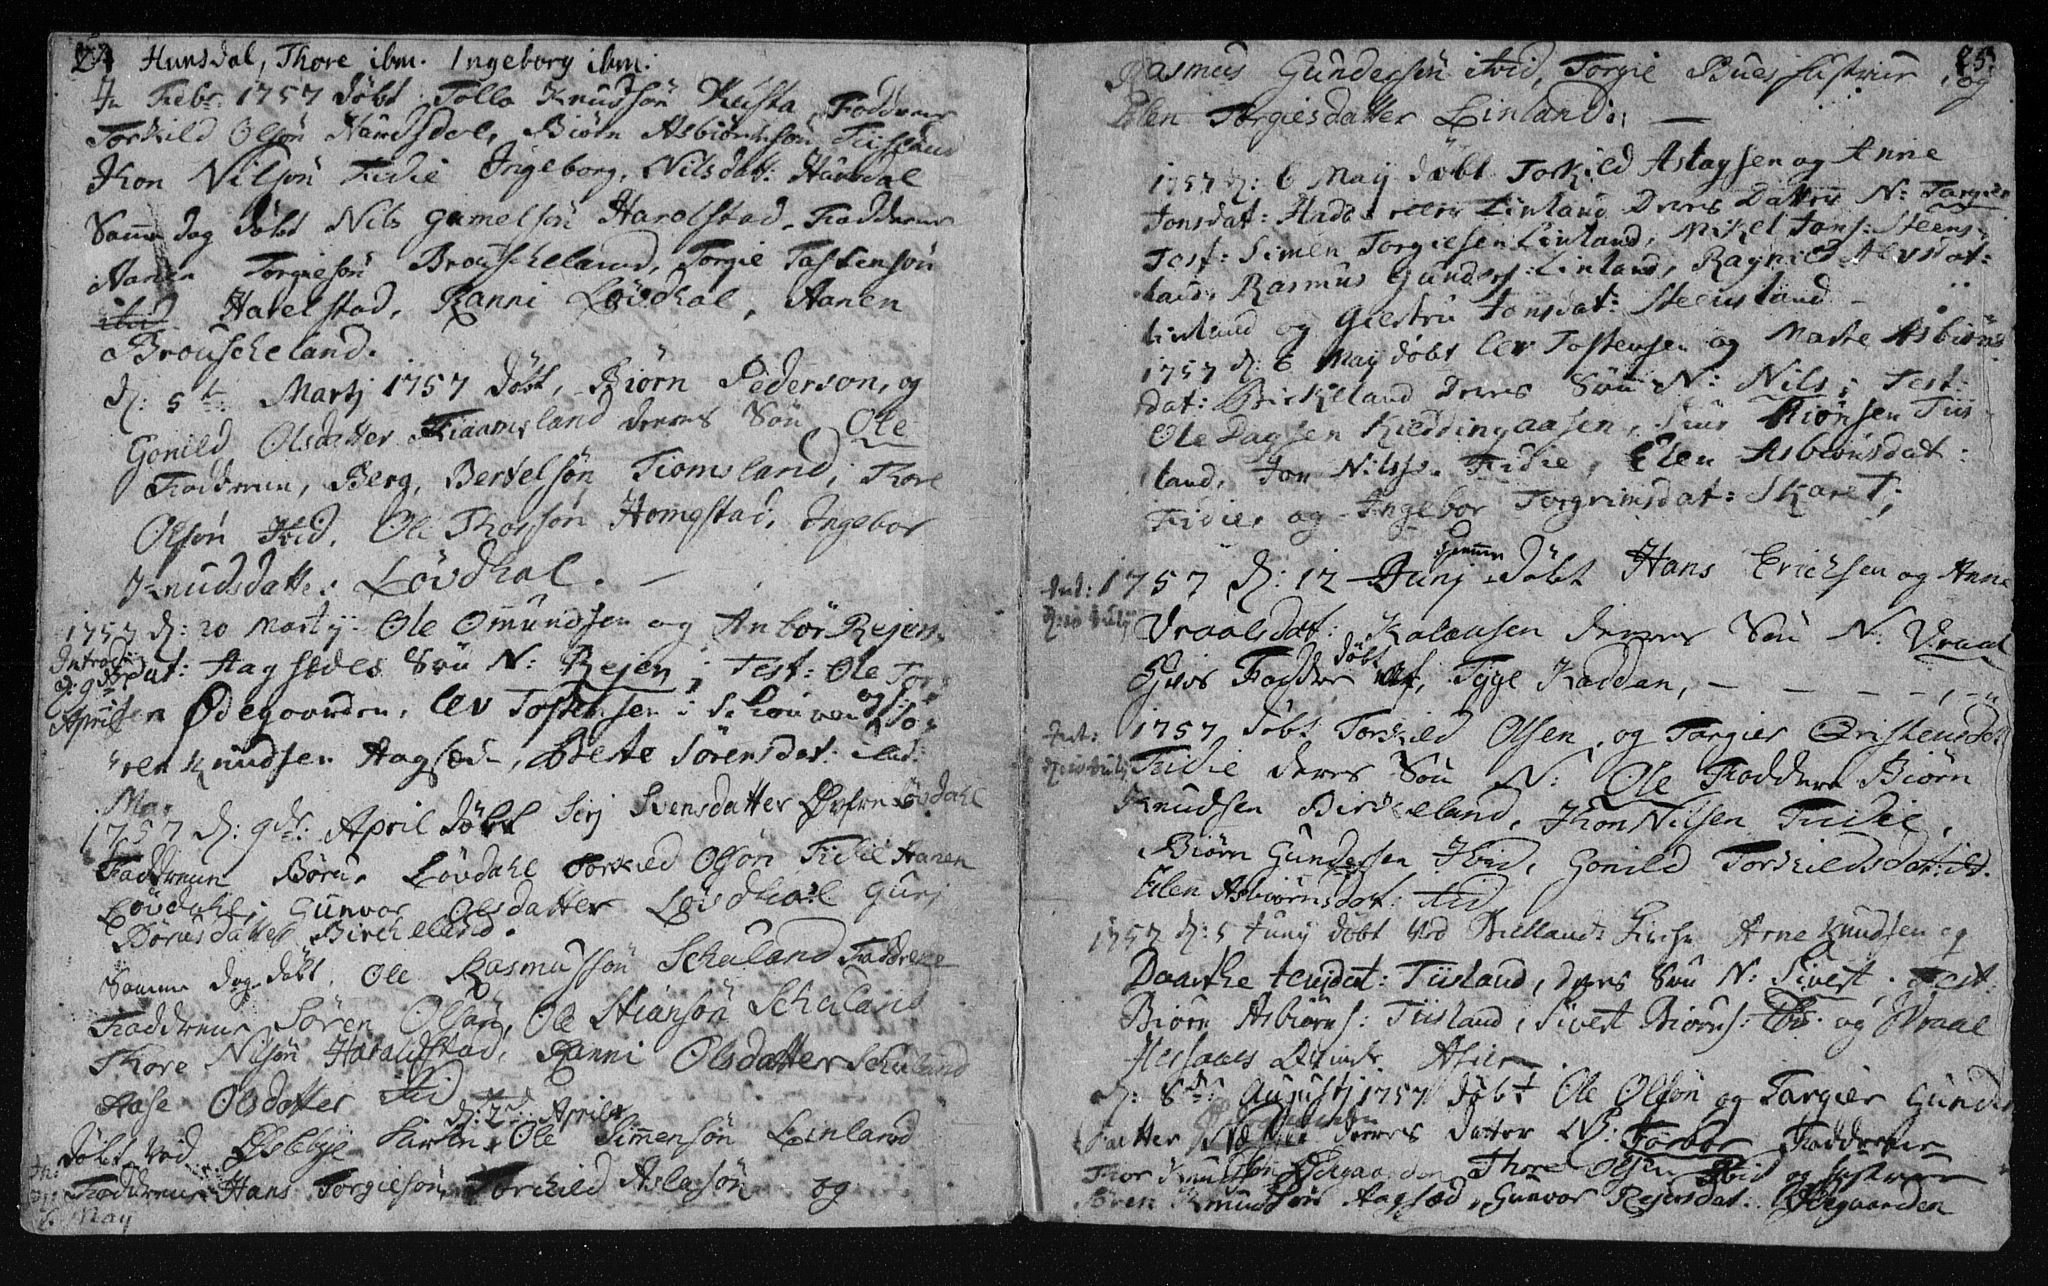 24 Hunsdal, Thore ibm. Ingeborg ibm:
Febr: 1757 döbt Tollo Knudsön Keista, Faddrene
Torkild Olsön Hundsdal, Biörn Asbiörnsön Tiisland
Jhon Nilsön Fidie Ingeborg, Nilsdatt: Hunsdal
Samme dag döbt Nils gamelsön Harelstad. Faddrene
Aanen Torgiesön Brouscheland, Torgie Tostensön
Harelstad, Ranni Lövdhal, Aanen
Brouscheland.
d: 5te Martj 1757 döbt, Biörn Pedersön, og
Gonild Olsdatter Fiaamsland deres Sön Ole
Faddrene, Berg, Bertelsön Fiomsland, Thore
Olsön Ibid, Ole Thorsön Homestad, Ingebor
Knudsdatter Lövdhal. —
1757 d: 20 Martij Ole Omundsen og Anbör Rejers-
Introd: dat: Aagsedes Sön N: Rejen; Test: Ole Tor-
April sen Ödegaarden, Lev Tostensen i Skouven og Sö-
ren Knudsen Aagsæd, Berte Sörensdat: ibid:
1757 d: 9de: April döbt Sirj Svensdatter Övre Lövdahl
Faddrene Börus Lövdahl Torkild Olsön Fidie Aanen
Lövdahl, Gunvor Olsdatter Lövdhal Guri
Börusdatter Birckeland.
Samme dag döbt Ole Rasmusson Schuland Faddrene
Faddrene Sören Olsön, Ole Stiansön Schuland
Thore Nilsön Haraldstad, Ranni Olsdatter Schuland
Aase Olsdatter ibid
d: 2den Aprilis
döbt ved Öslebye Kirken, Ole Simensön Linland
Faddrene Hans Torgiesön, Torchild Aslagsön og
May
25
Rasmus Gundersön ibid, Torgie Bues Hustrue, og
Elen Torgiesdatter Linland: —
1757 d: 6 Maij döbt Torkild Aslagsen og Anne
Jonsdat: Linland Deres Datter N: Targier
Test: Simen Torgiesen Linland, Mikel Jons: Steens-
land, Rasmus Gunders: Linland, Ragnild Alvsdat:
Linland og Giertru Jonsdat: Steensland —
1757 d: 6 Maij döbt Lev Tostensen og Marte Asbiörns
dat: Birkeland Deres Sön N: Nils; Test:
Ole Dagsen Kieddingaasen, Siur Biönsen Tiis-
land, Jon Nilss. Fidie, Elen Asbiönsdat:
Fidie og Ingebor Torgrimsdat: Skaret;
Int: 1757 d: 12 Junj döbt Hans Erichsen og Anne
Vraalsdat: Kalausen deres Sön N: Vraal
Hvis Faddre döbt af, Tyge Kaddan, — — — —
Int: 1757 döbt Torkild Olsen og Targier Cristensdat
Fidie deres Sön N: Ole Faddere Biörn
Knudsen Birckeland, Jhon Nilsen Fidie,
Biörn Gundersen Ibid, Gonild Torkildsdat: ibid.
Elen Asbiörnsdat: ibid
1757 d: 5 Junij döbt ved Bielland Kirche Arne Knudsen og
Daarthe Tiisland, deres Sön N: Sivert. Test:
Biörn Asbiörns: Tiisland, Sivert Biörns: Ibid. og Vraal
d: 8de: Augustj 1757 döbt Ole Olsön og Targier Gunder
Datter deres datter N: Torbor Faddrene
Thor Knudsön Ödegaarden Thore Olsen Ibid og Hustrue
Sören Knudsön Aagsæd, Gunvor Rejersdat: Ödegaarden